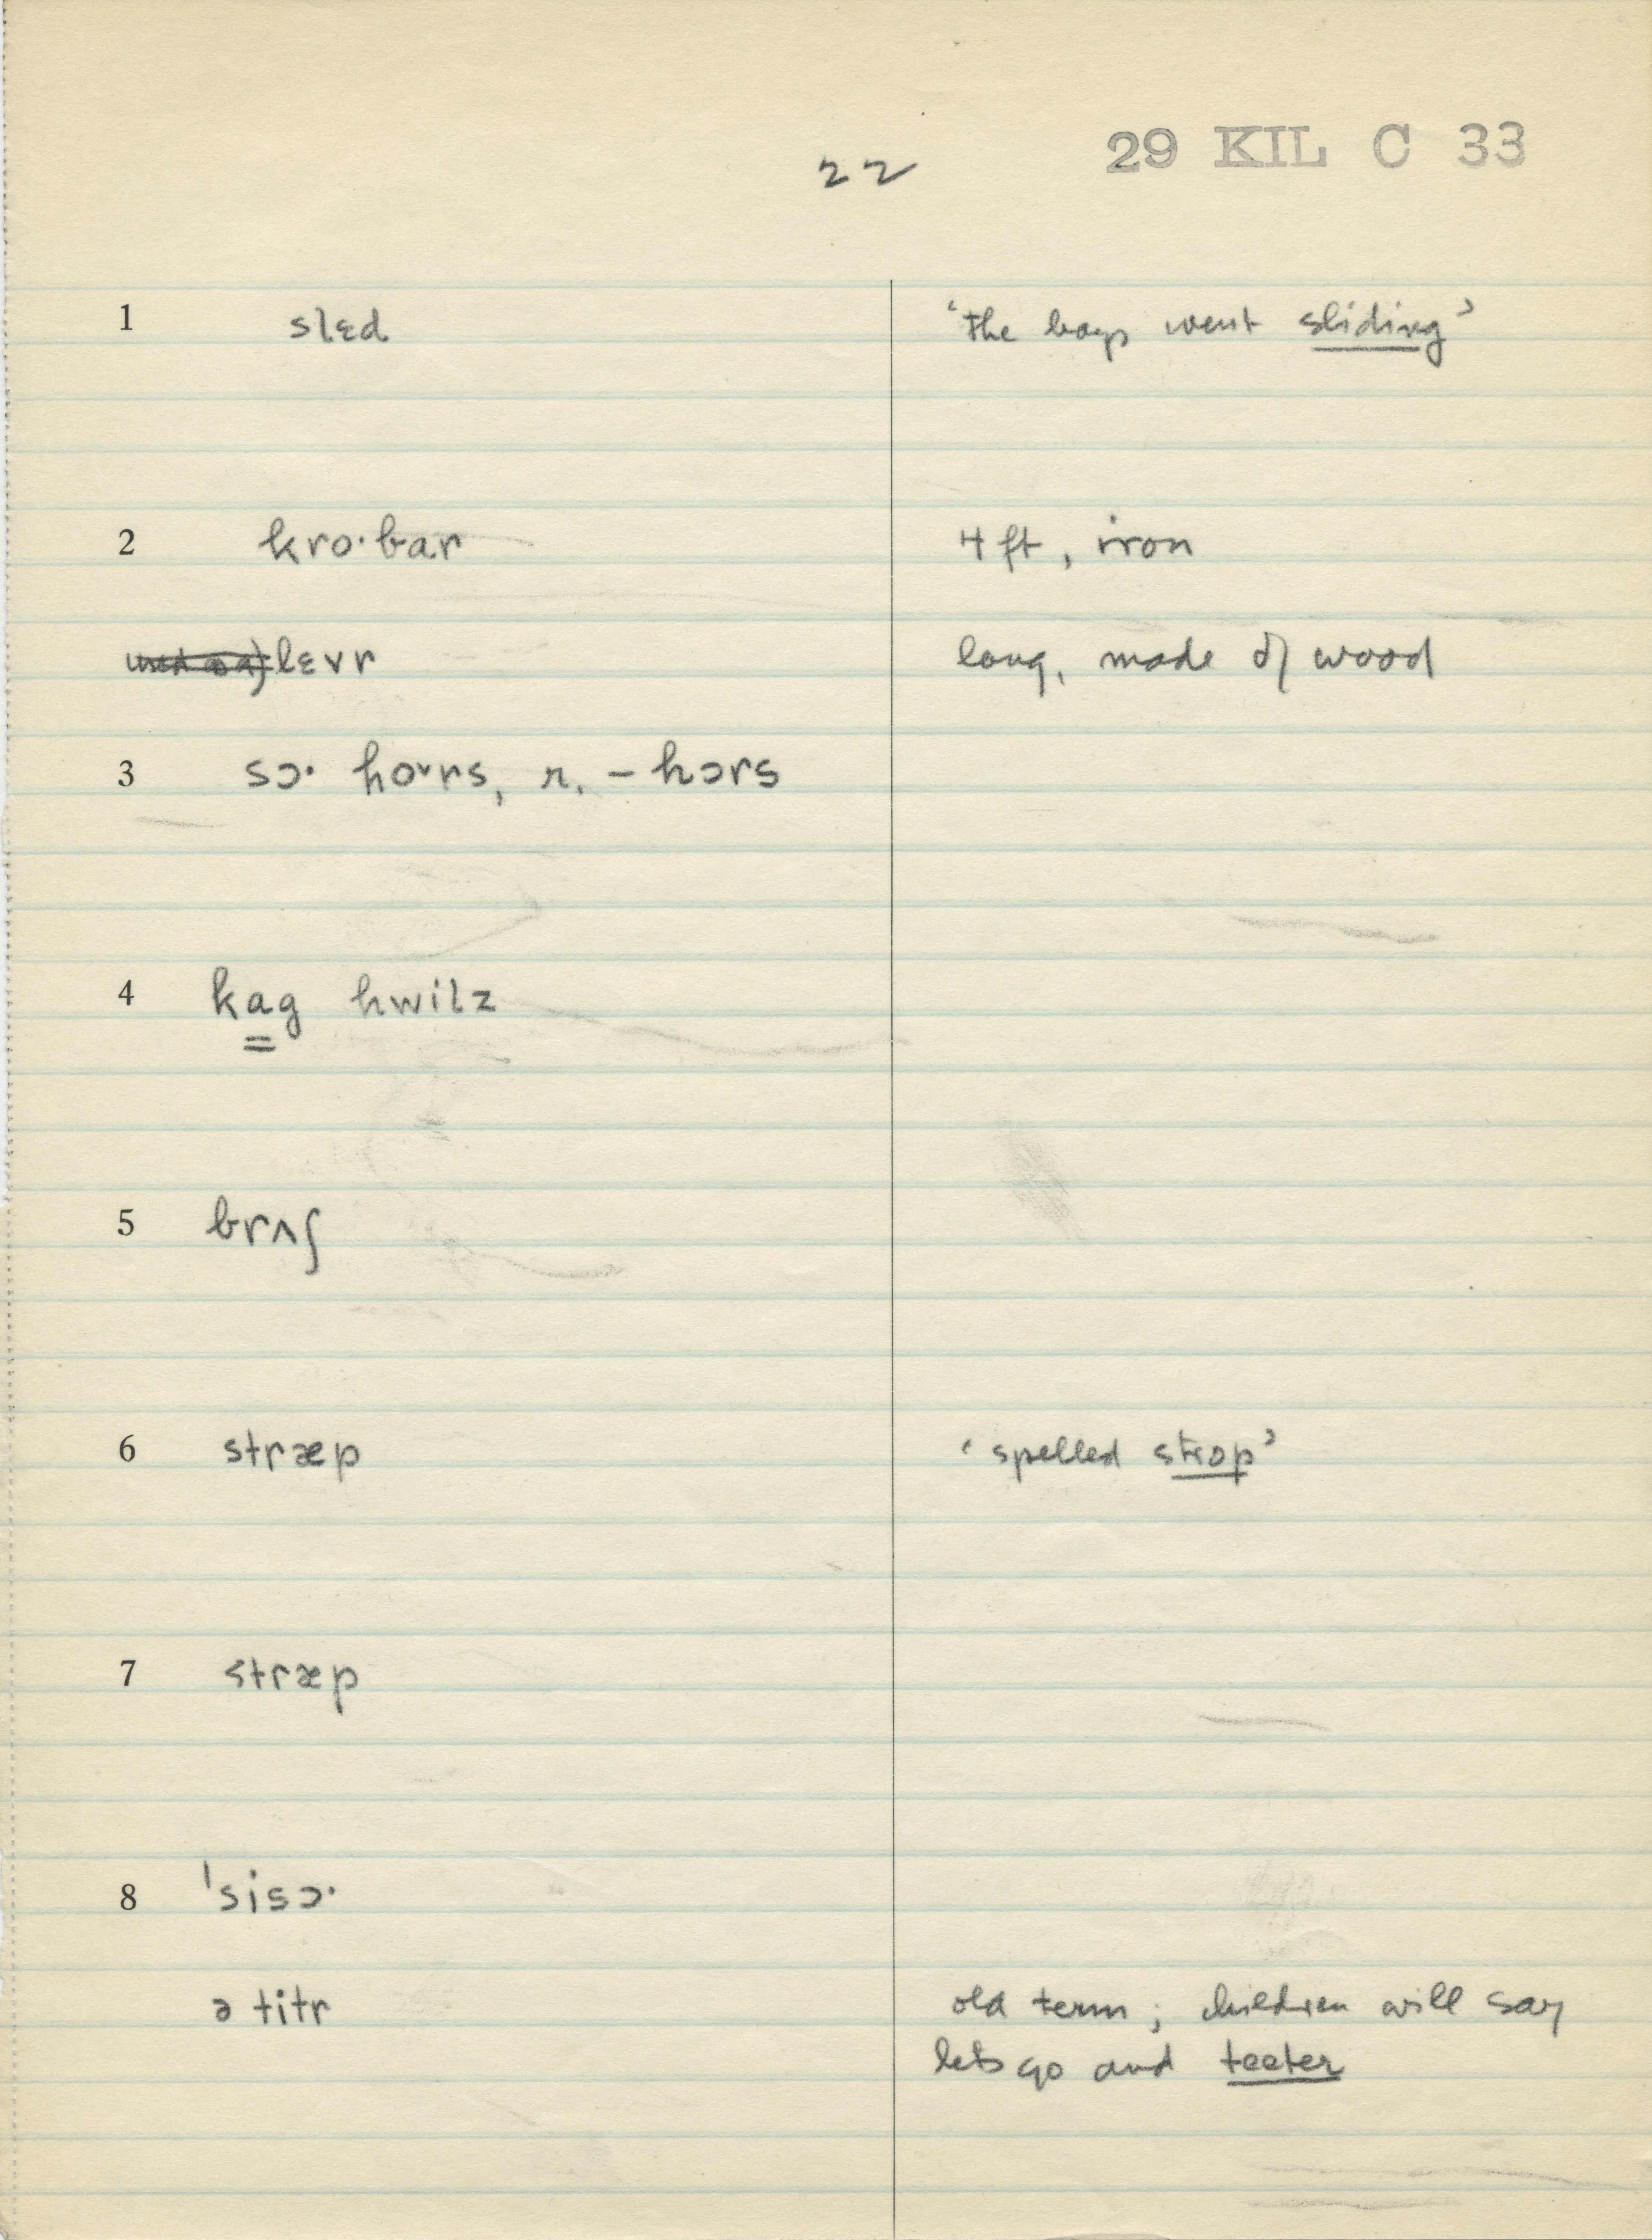 22
29 KIL C 33
1 slɛd ‘the boys went sliding’
2 kro·bar 4 ft, iron
lɛvr long, made of wood
3 sɔ· ho˅rs, r. – hɔrs
4 kag hwilz
5 brʌʃ
6 stræp ‘spelled strop’
7 stræp
8 ˈsisɔ·
ə titr old term; children will say
lets go and teeter